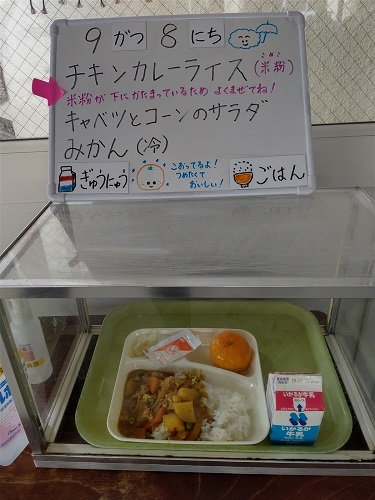 9がつ8にち
チキンカレーライス(米粉)
こめこ
米粉が下にかたまっているため よくまぜてね!
キャベツとコーンのサラダ
みかん(冷)
ぎゅうにゅう
こおってるよ!
つめたくて
おいしい!
ごはん
いかるが牛乳
いかるが
牛乳